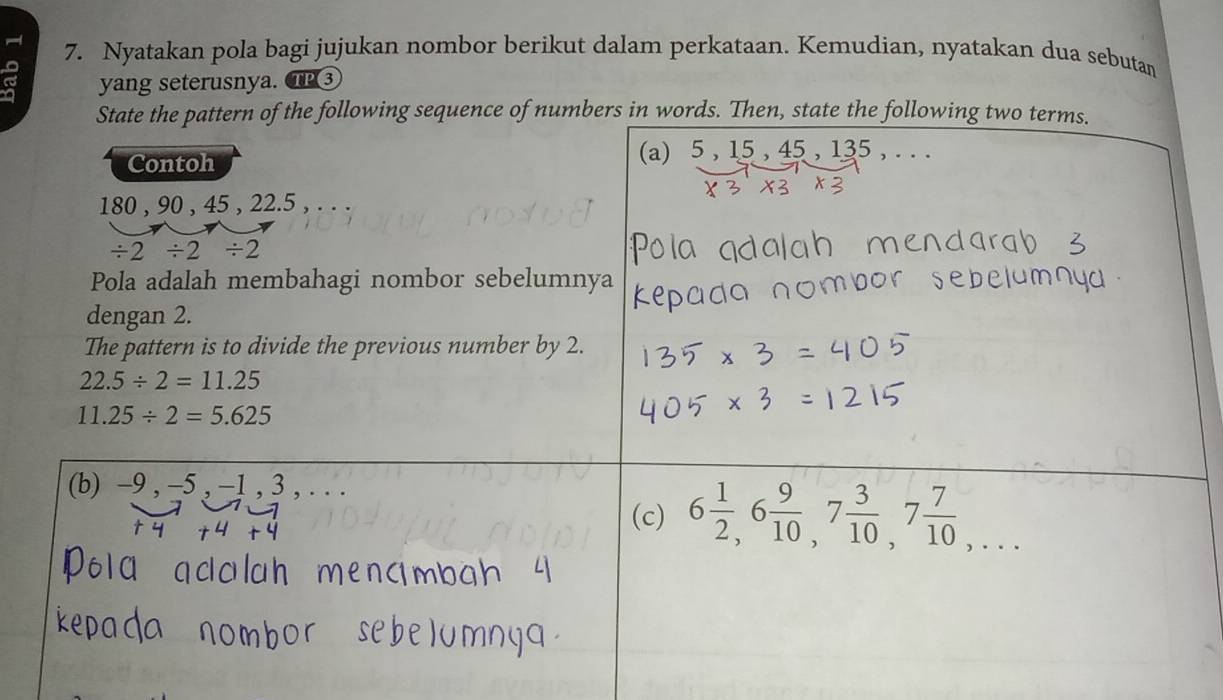 Bab 1
7. Nyatakan pola bagi jujukan nombor berikut dalam perkataan. Kemudian, nyatakan dua sebutan
yang seterusnya. TP 3
State the pattern of the following sequence of numbers in words. Then, state the following two terms.
Contoh
180 , 90 , 45 , 22.5 , . . .
÷2 ÷2 ÷2
Pola adalah membahagi nombor sebelumnya
dengan 2.
The pattern is to divide the previous number by 2.
22.5 ÷ 2 = 11.25
11.25 ÷ 2 = 5.625
(a) 5 , 15 , 45 , 135 , . . .
×3 ×3 ×3
Pola adalah mendarab 3
kepada nombor sebelumnya.
135 × 3 = 405
405 × 3 = 1215
(b) –9 , –5 , –1 , 3 , . . .
+4 +4 +4
Pola adalah menambah 4
kepada nombor sebelumnya.
(c) 6 1/2, 6 9/10, 7 3/10, 7 7/10, . . .